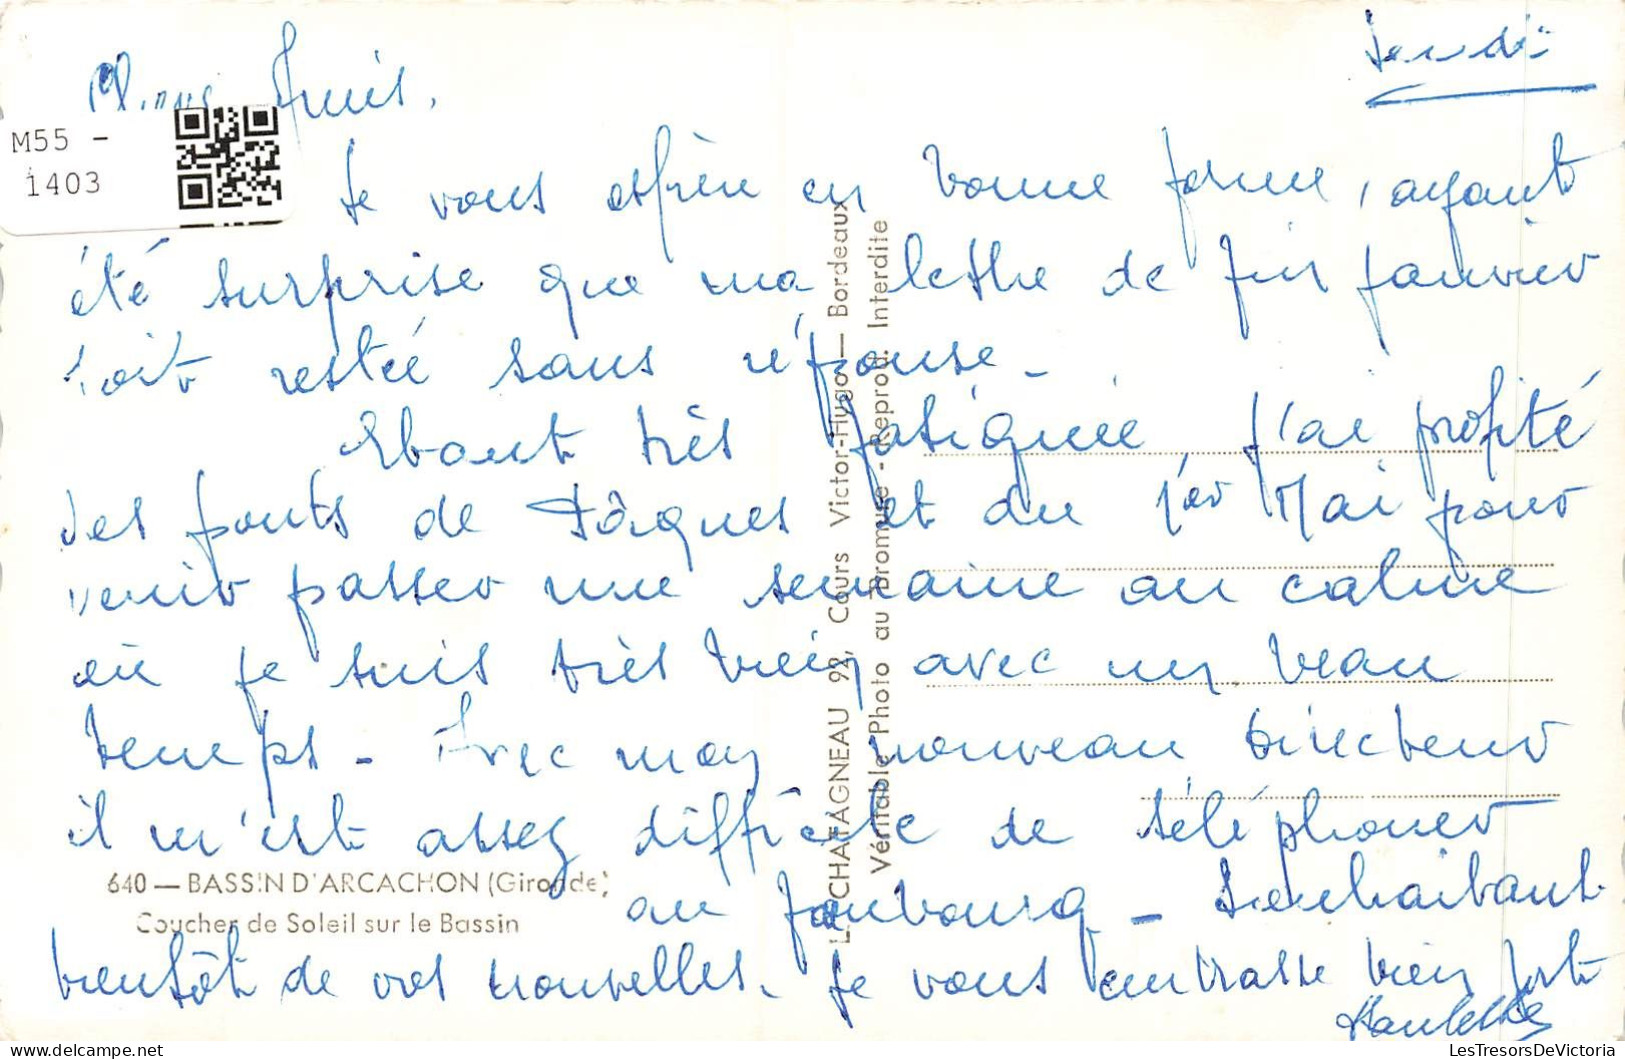 Jeudi
Chers Amis,
M55 -
1403
Je vous espère en bonne forme, ayant
été surprise que ma lettre de fin janvier
soit restée sans réponse -
Etant très fatiguée j'ai profité
des ponts de Pâques et du 1er Mai pour
venir passer une semaine au calme
où je suis très bien avec un beau
temps - Avec mon nouveau Directeur
il m'est assez difficile de téléphoner
au faubourg - Souhaitant
bientôt de vos nouvelles, je vous embrasse bien fort
Paulette
640 — BASSIN D'ARCACHON (Gironde)
Coucher de Soleil sur le Bassin
L. CHATAGNEAU 92, Cours Victor-Hugo — Bordeaux
Véritable Photo au Bromure - Reprod. Interdite
LesTresorsDeVictoria